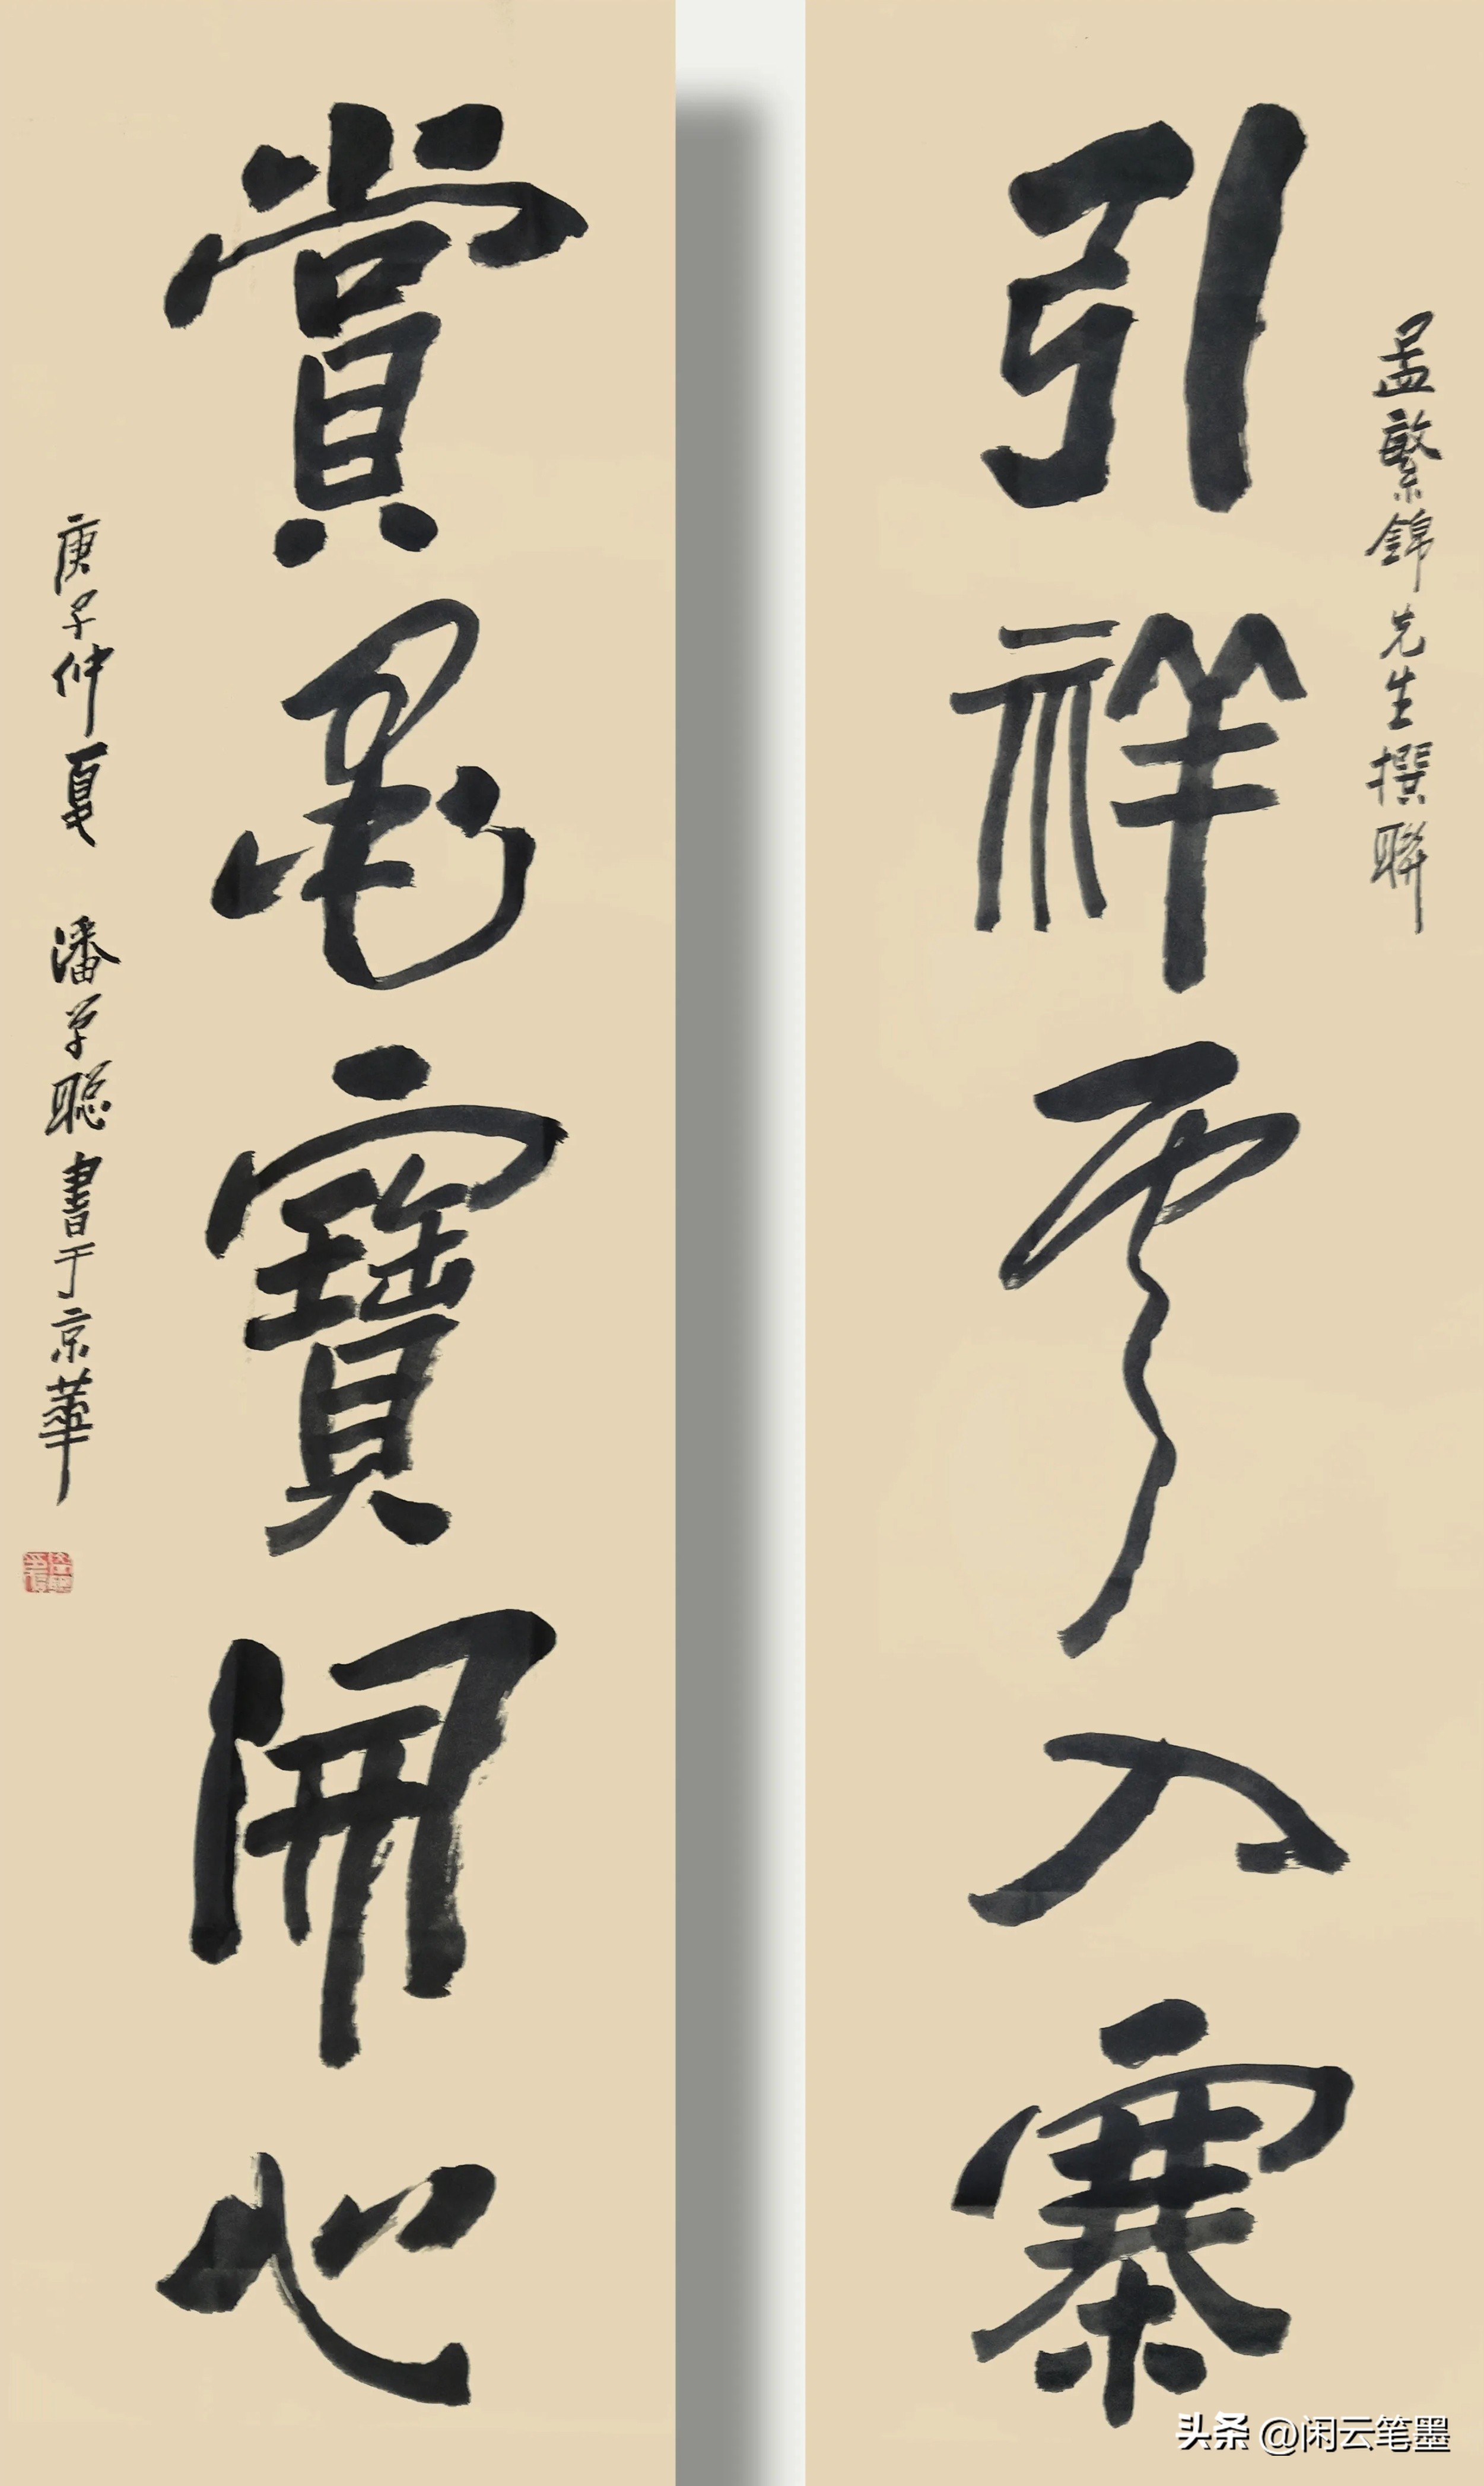 孟繁錦先生撰聯
引祥雲入寨
賞龜寶開心
庚子仲夏 潘学聪書于京華
头条 @闲云笔墨